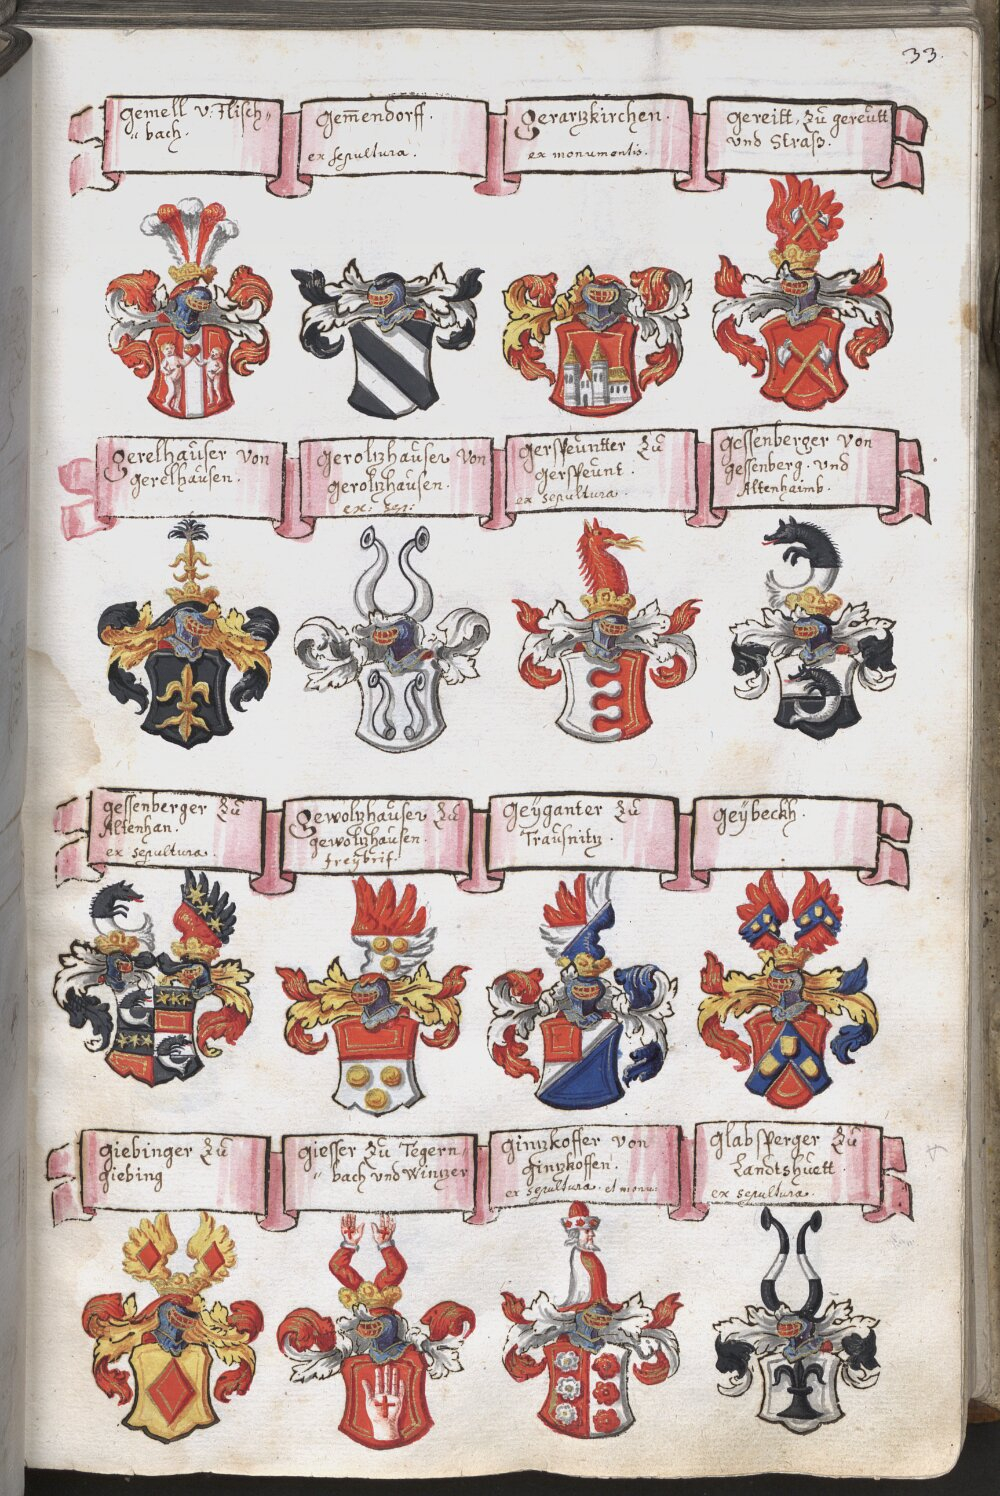 33.
Gemell v: Flisch=
"bach.
Gem̄endorff.
ex sepultura.
Gerartzkirchen.
ex monumentis.
Gereitt, zu gereutt
vnd Straß.
Gerelhauser von
gerelhausen.
Geroltzhauser von
geroltzhausen.
ex: sep:
Gerspeuntter zu
Gerspeunt.
ex sepultura.
Gessenberger von
gessenberg. vnd
Altenhaimb.
Gessenberger zu
Altenhan.
ex sepultura.
Gewoltzhauser zu
gewoltzhausen.
freybrif.
Geÿganter zu
Trausnitz
Geÿbeckh.
Giebinger zu
giebing
Giesser zu Tegern,
"bach vnd Wintzer
Gintzkoffer von
Gintzkoffen.
ex sepultura. et monu:
Glabsperger zu
Landtshuett.
ex sepultura.